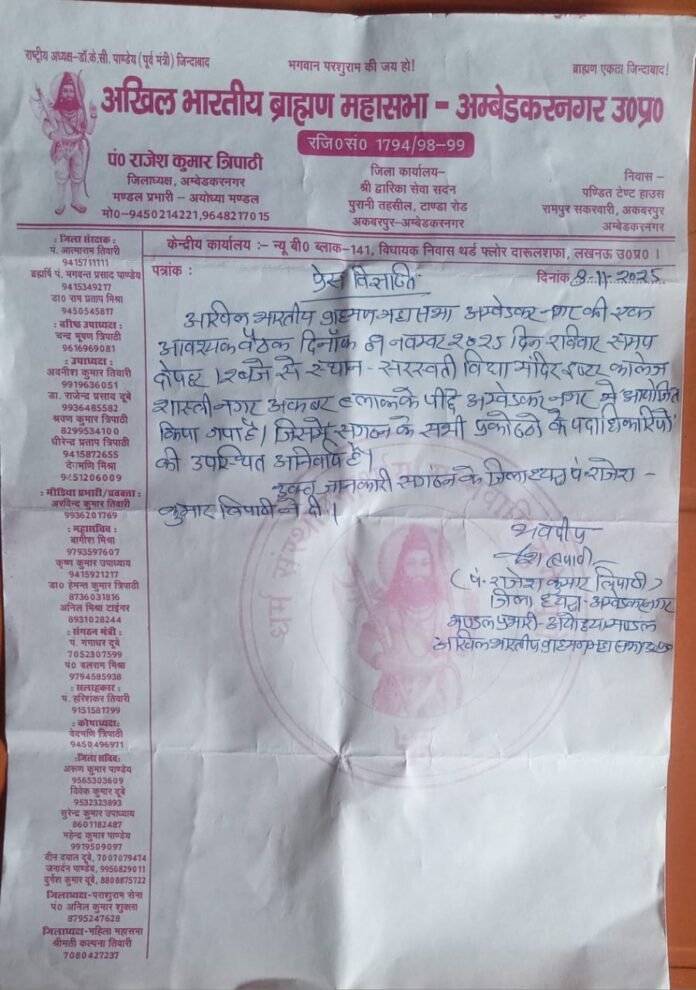 राष्ट्रीय अध्यक्ष-डॉ.के.सी. पाण्डेय (पूर्व मंत्री) जिन्दाबाद
भगवान परशुराम की जय हो!
ब्राह्मण एकता जिन्दाबाद!
अखिल भारतीय ब्राह्मण महासभा - अम्बेडकरनगर उ०प्र०
रजि०सं० 1794/98-99
पं० राजेश कुमार त्रिपाठी
जिलाध्यक्ष, अम्बेडकरनगर
मण्डल प्रभारी - अयोध्या मण्डल
मो०-9450214221,9648217015
जिला कार्यालय-
श्री द्वारिका सेवा सदन
पुरानी तहसील, टाण्डा रोड
अकबरपुर-अम्बेडकरनगर
निवास -
पण्डित टेण्ट हाउस
रामपुर सकरवारी, अकबरपुर
अम्बेडकरनगर
केन्द्रीय कार्यालय :- न्यू बी० ब्लाक-141, विधायक निवास थर्ड फ्लोर दारूलशफा, लखनऊ उ०प्र० ।
पत्रांक :
दिनांक 8-11-2025
: जिला संरक्षक :
पं. आत्माराम तिवारी
9415711111
ब्रह्मर्षि पं. भगवन्त प्रसाद पाण्डेय
9415349217
डा० राम प्रताप मिश्रा
9450545817
: वरिष्ठ उपाध्यक्ष :
चन्द्र भूषण त्रिपाठी
9616969081
: उपाध्यक्ष :
अवनीश कुमार तिवारी
9919636051
डा. राजेन्द्र प्रसाद दूबे
9936485582
श्रवण कुमार त्रिपाठी
8299534100
धीरेन्द्र प्रताप त्रिपाठी
9415872655
देवमणि मिश्रा
9451206009
: मीडिया प्रभारी/प्रवक्ता :
अरविन्द कुमार तिवारी
9936201769
: महासचिव :
बागीश मिश्रा
9793597607
कृष्ण कुमार उपाध्याय
9415921217
डा० हेमन्त कुमार त्रिपाठी
8736031816
अनिल मिश्रा टाईगर
8931028244
: संगठन मंत्री :
पं. गंगाधर दूबे
7052307599
पं० बलराम मिश्रा
9794585938
: सलाहकार :
पं. हरिशंकर तिवारी
9151581799
: कोषाध्यक्ष:
वेदमणि त्रिपाठी
9450496971
:जिला सचिव:
अरूण कुमार पाण्डेय
9565303609
विवेक कुमार दूबे
9532323893
सुरेन्द्र कुमार उपाध्याय
8601182487
महेन्द्र कुमार पाण्डेय
9919509097
दीन दयाल दूबे, 7007079474
जनार्दन पाण्डेय, 9956829011
दुर्गेश कुमार दूबे, 8808875722
जिलाध्यक्ष-परशुराम सेना
पं० अनिल कुमार शुक्ला
8795247628
जिलाध्यक्ष-महिला महासभा
श्रीमती कल्पना तिवारी
7080427237
प्रेस विज्ञप्ति
अखिल भारतीय ब्राह्मण महासभा अम्बेडकर नगर की एक
आवश्यक बैठक दिनाँक 09 नवम्बर 2025 दिन रविवार समय
दोपहर 12 बजे से स्थान - सरस्वती विद्या मंदिर इण्टर कालेज
शास्त्री नगर अकबरपुर के पीछे अम्बेडकर नगर में आयोजित
किया गया है। जिसमें संगठन के सभी प्रकोष्ठो के पदाधिकारियों
की उपस्थित अनिवार्य है।
उक्त जानकारी संगठन के जिलाध्यक्ष पं. राजेश -
कुमार त्रिपाठी ने दी।
भवदीय
(पं. राजेश कुमार त्रिपाठी)
जिलाध्यक्ष - अम्बेडकरनगर
मण्डल प्रभारी - अयोध्या मण्डल
अखिल भारतीय ब्राह्मण महासभा उ०प्र०